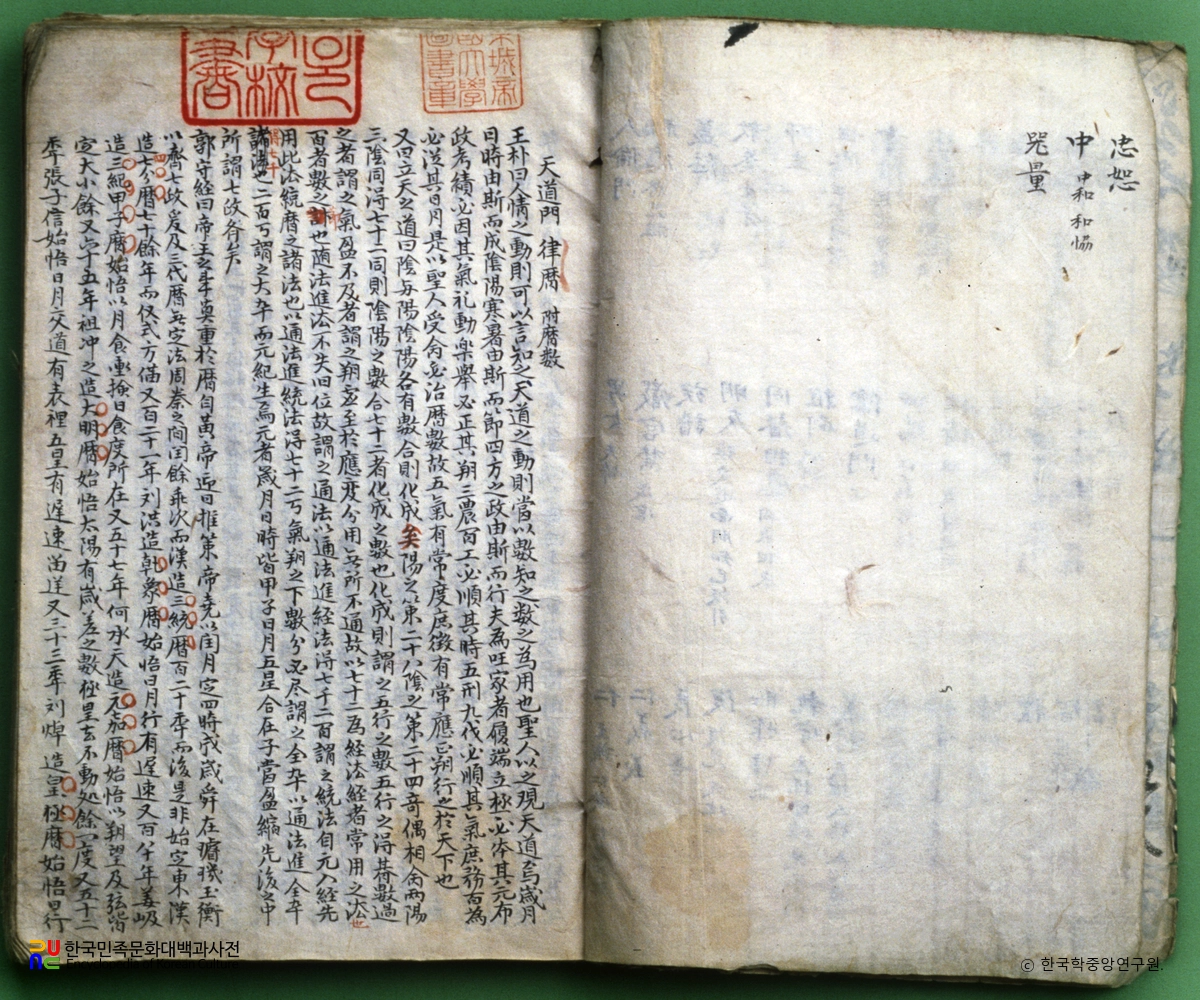 忠恕
中 中和 和惕
咒量
天道門 律曆 附曆數
王朴曰人情之動則可以言知之天道之動則當以數知之數之為用也聖人以之观天道焉歲月
日時由斯而成陰陽寒暑由斯而節四方之政由斯而行夫為国家者履端立極必体其元布
政考績必因其氣礼動樂舉必正其朔三農百工必順其時五刑九伐必順其氣庶務有為
必從其日月是以聖人受命必治曆數故五氣有常度庶徵有常應正朔行之於天下也
又曰立天之道曰陰与陽陰陽各有數合則化成矣陽之策二十八陰之策二十四奇偶相命兩陽
三陰同得七十二同則陰陽之數合七十二者化成之數也化成則謂之五行之數五行之得朞數過
之者謂之氣盈不及者謂之朔虛至於應变分用無所不通故以七十二為経法経者常用之法也
百者數之也随法進法不失旧位故謂之通法以通法進経法得七千二百謂之統法自元入経先
用此法統曆之諸法也以通法進統法得七十二万氣朔之下數分必尽謂之全率以通法進全率
得七千二百万謂之大率而元紀生焉元者歲月日時皆甲子日月五星合在子當盈縮先後之中
所謂七政斉矣
郭守経曰帝王之事莫重於曆自黄帝迎日推策帝堯以閏月定四時成歲舜在璿璣玉衡
以齊七政爰及三代曆無定法周秦之间閏餘乖次而漢造三統曆百二十年而後是非始定東漢
造七分曆七十餘年而仪式方僃又百二十一年刘洪造乾象曆始悟日月行有遲速又百八十年姜岌
造三紀甲子曆始悟以月食衝撿日食度所在又五十七年何承天造元嘉曆始悟以朔望及弦皆
定大小餘又六十五年祖冲之造大明曆始悟太陽有歲差之數極星去不動処餘一度又五十二
年張子信始悟日月交道有表裡五星有遲速畄逆又三十三年刘焯造皇極曆始悟日行
한국민족문화대백과사전
Encyclopedia of Korean Culture
ⓒ 한국학중앙연구원.